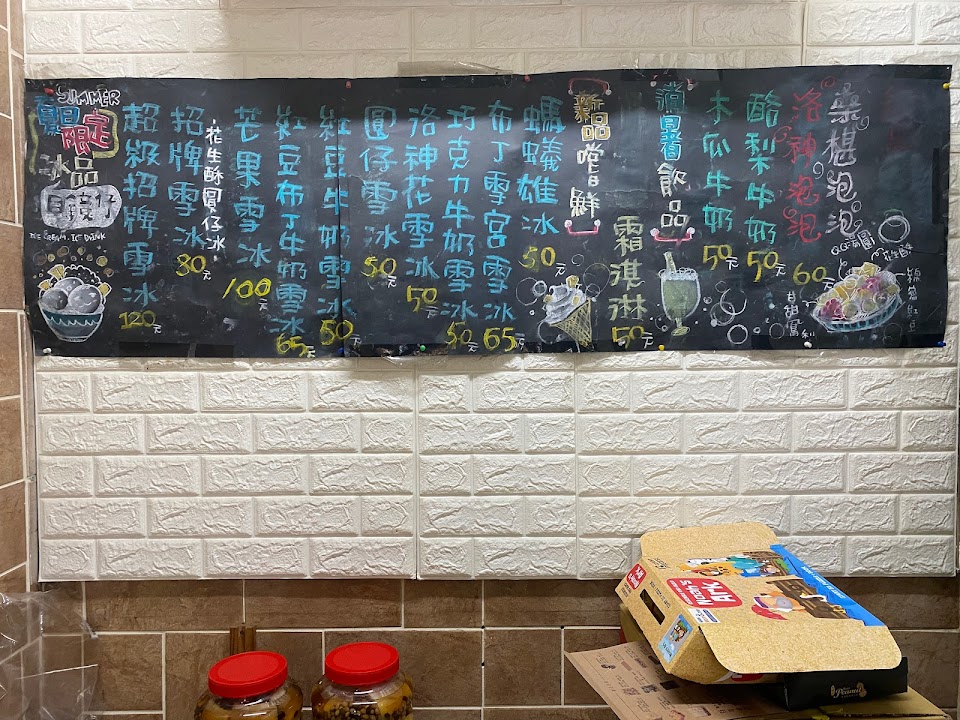 SUMMER
夏日限定
冰品
目鏡仔
ICE CREAM . ICE DRINK
超級招牌雪冰
120元
招牌雪冰
80元
花生酥圓仔冰
芒果雪冰
100元
紅豆布丁牛奶雪冰
65元
紅豆牛奶雪冰
50元
圓仔雪冰
50元
洛神花雪冰
50元
巧克力牛奶雪冰
50元
布丁雪宮雪冰
65元
螞蟻雄冰
50元
新品嚐鮮
霜淇淋
50元
消暑飲品
木瓜牛奶
50元
酪梨牛奶
50元
洛神泡泡
60元
桑椹泡泡
NOAH'S
Ark